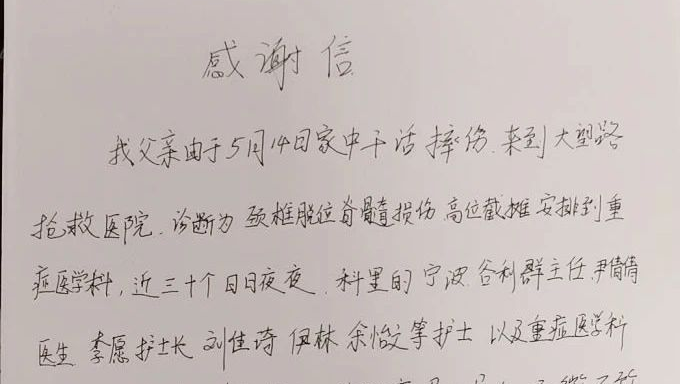 感谢信
我父亲由于5月14日家中干活摔伤.来到大型路
抢救医院.诊断为颈椎脱位脊髓损伤高位截摊安排到重
症医学科,近三十个日日夜夜.科里的宁波.谷利群主任.尹倩倩
医生李愿护士长刘佳琦伊林余怡文等护士以及重症医学科